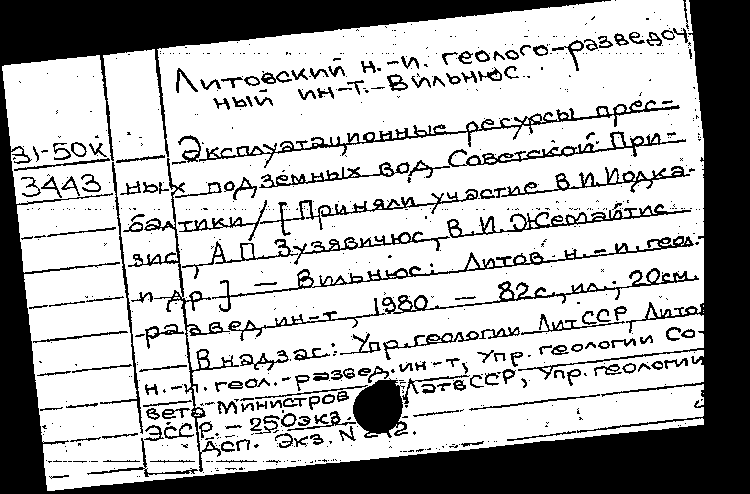 Литовский н.-и. геолого-разведоч
ный ин-т. Вильнюс.
31-50к
3443
Эксплуатационные ресурсы прес-
ных подземных вод Советской При-
балтики / [Приняли участие В.И. Иодка-
зис, А.П. Зузявичюс, В.И. Жемайтис
и др.] — Вильнюс: Литов. н.-и. геол.-
развед. ин-т, 1980. — 82с., ил.; 20см.
В надзаг.: Упр. геологии ЛитССР, Литов
н.-и. геол.-развед. ин-т, Упр. геологии Со-
вета Министров ЛатвССР, Упр. геологии
ЭССР. — 250экз.
Дсп. Экз. N